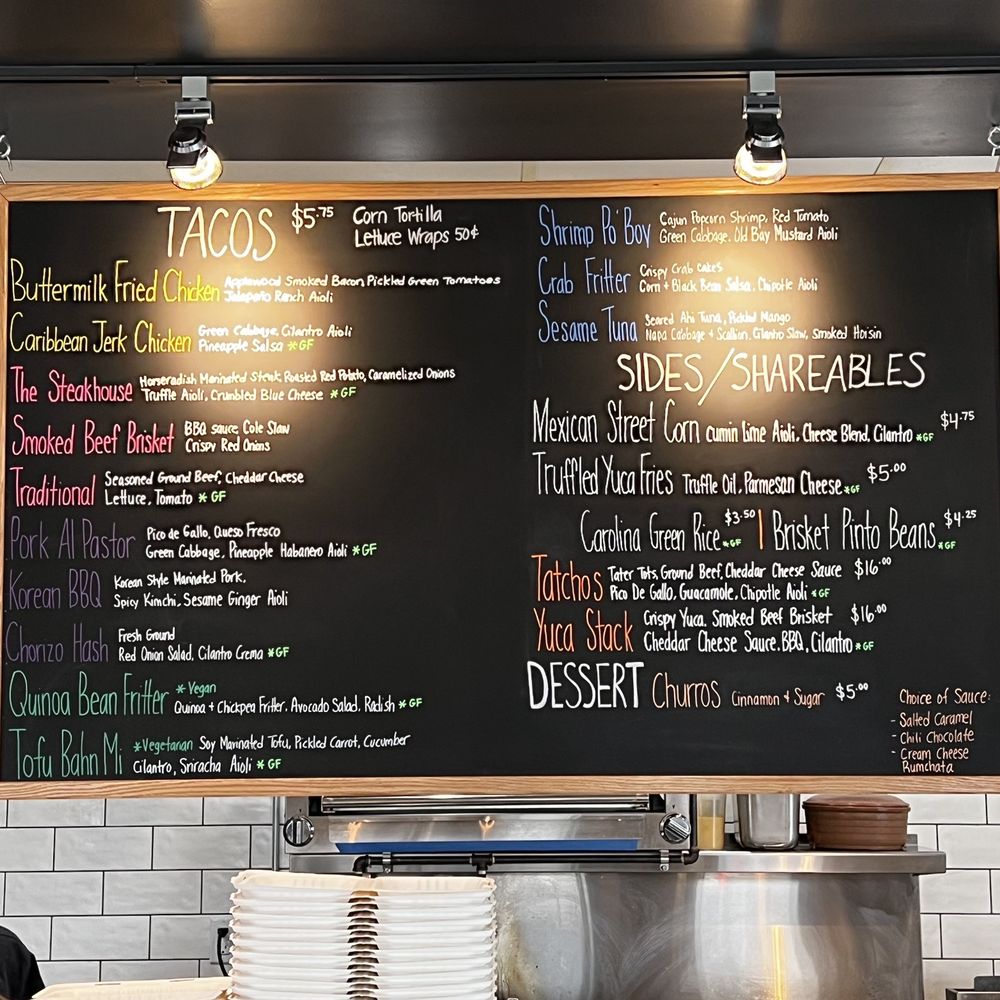 TACOS $5.75 Corn Tortilla
Lettuce Wraps 50¢
Buttermilk Fried Chicken Applewood Smoked Bacon, Pickled Green Tomatoes
Jalapeño Ranch Aioli
Caribbean Jerk Chicken Green Cabbage, Cilantro Aioli
Pineapple Salsa *GF
The Steakhouse Horseradish Marinated Steak, Roasted Red Potato, Caramelized Onions
Truffle Aioli, Crumbled Blue Cheese *GF
Smoked Beef Brisket BBQ sauce, Cole Slaw
Crispy Red Onions
Traditional Seasoned Ground Beef, Cheddar Cheese
Lettuce, Tomato *GF
Pork Al Pastor Pico de Gallo, Queso Fresco
Green Cabbage, Pineapple Habanero Aioli *GF
Korean BBQ Korean Style Marinated Pork,
Spicy Kimchi, Sesame Ginger Aioli
Chorizo Hash Fresh Ground
Red Onion Salad, Cilantro Crema *GF
Quinoa Bean Fritter *Vegan
Quinoa + Chickpea Fritter, Avocado Salad, Radish *GF
Tofu Bahn Mi *Vegetarian Soy Marinated Tofu, Pickled Carrot, Cucumber
Cilantro, Sriracha Aioli *GF
Shrimp Po' Boy Cajun Popcorn Shrimp, Red Tomato
Green Cabbage, Old Bay Mustard Aioli
Crab Fritter Crispy Crab Cakes
Corn + Black Bean Salsa, Chipotle Aioli
Sesame Tuna Seared Ahi Tuna, Pickled Mango
Napa Cabbage + Scallion, Cilantro Slaw, Smoked Hoisin
SIDES/SHAREABLES
Mexican Street Corn Cumin Lime Aioli, Cheese Blend, Cilantro *GF $4.75
Truffled Yuca Fries Truffle Oil, Parmesan Cheese *GF $5.00
Carolina Green Rice *GF $3.50 | Brisket Pinto Beans *GF $4.25
Tatchos Tater Tots, Ground Beef, Cheddar Cheese Sauce $16.00
Pico De Gallo, Guacamole, Chipotle Aioli *GF
Yuca Stack Crispy Yuca, Smoked Beef Brisket $16.00
Cheddar Cheese Sauce, BBQ, Cilantro *GF
DESSERT Churros Cinnamon + Sugar $5.00
Choice of Sauce:
- Salted Caramel
- Chili Chocolate
- Cream Cheese
Rumchata